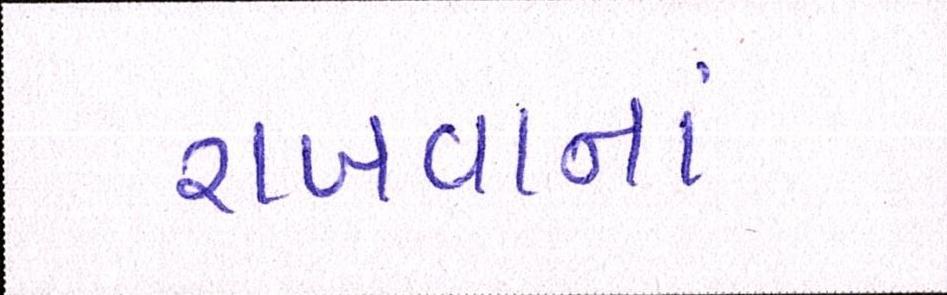 રાખવાનાં